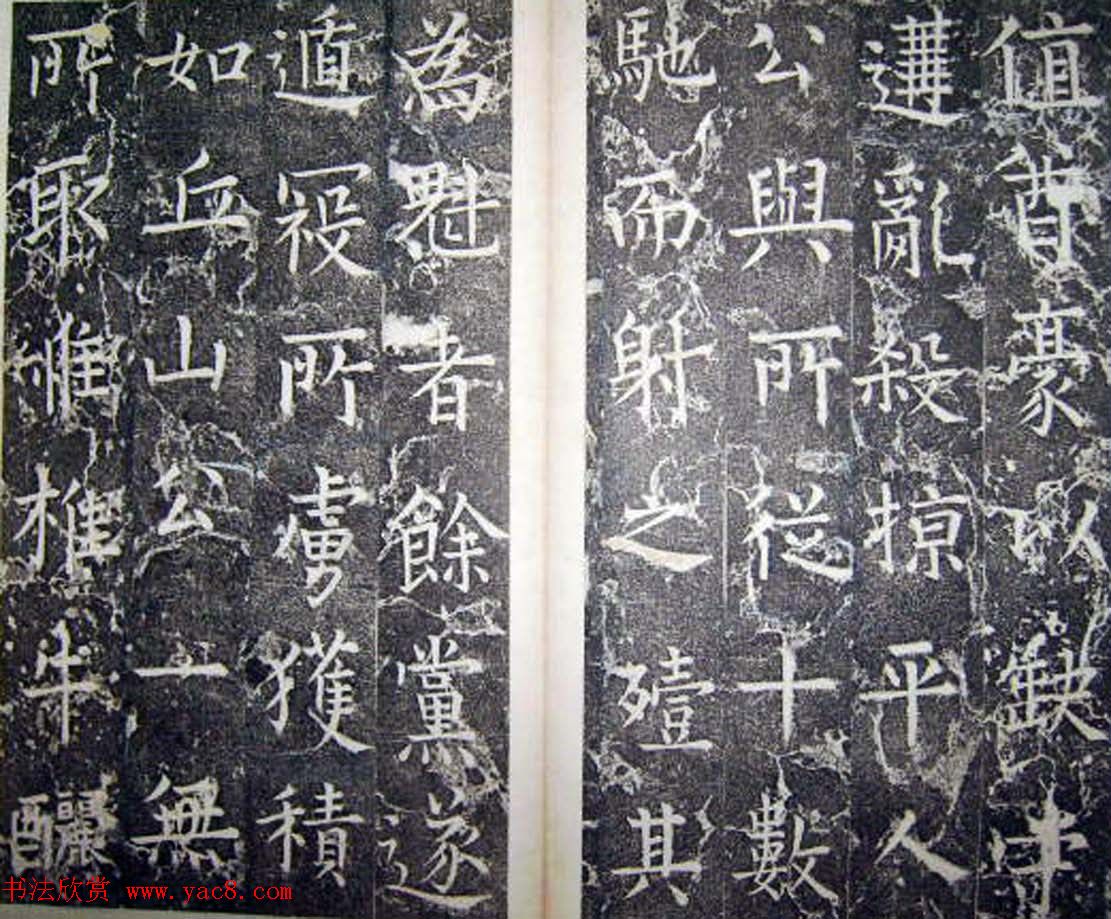 值豪以缺
遘亂殺掠平人
公與所從十數
馳而射之殪其
為魁者餘黨遂
遁寇所虜獲積
如丘山公一無
所取惟椎牛釃
书法欣赏 www.yac8.com